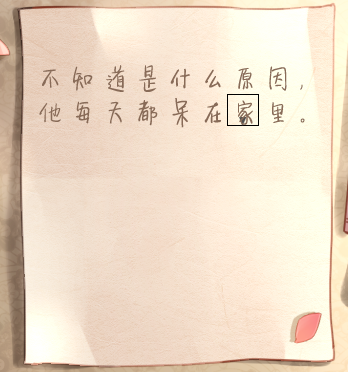 不知道是什么原因，
他每天都呆在家里。